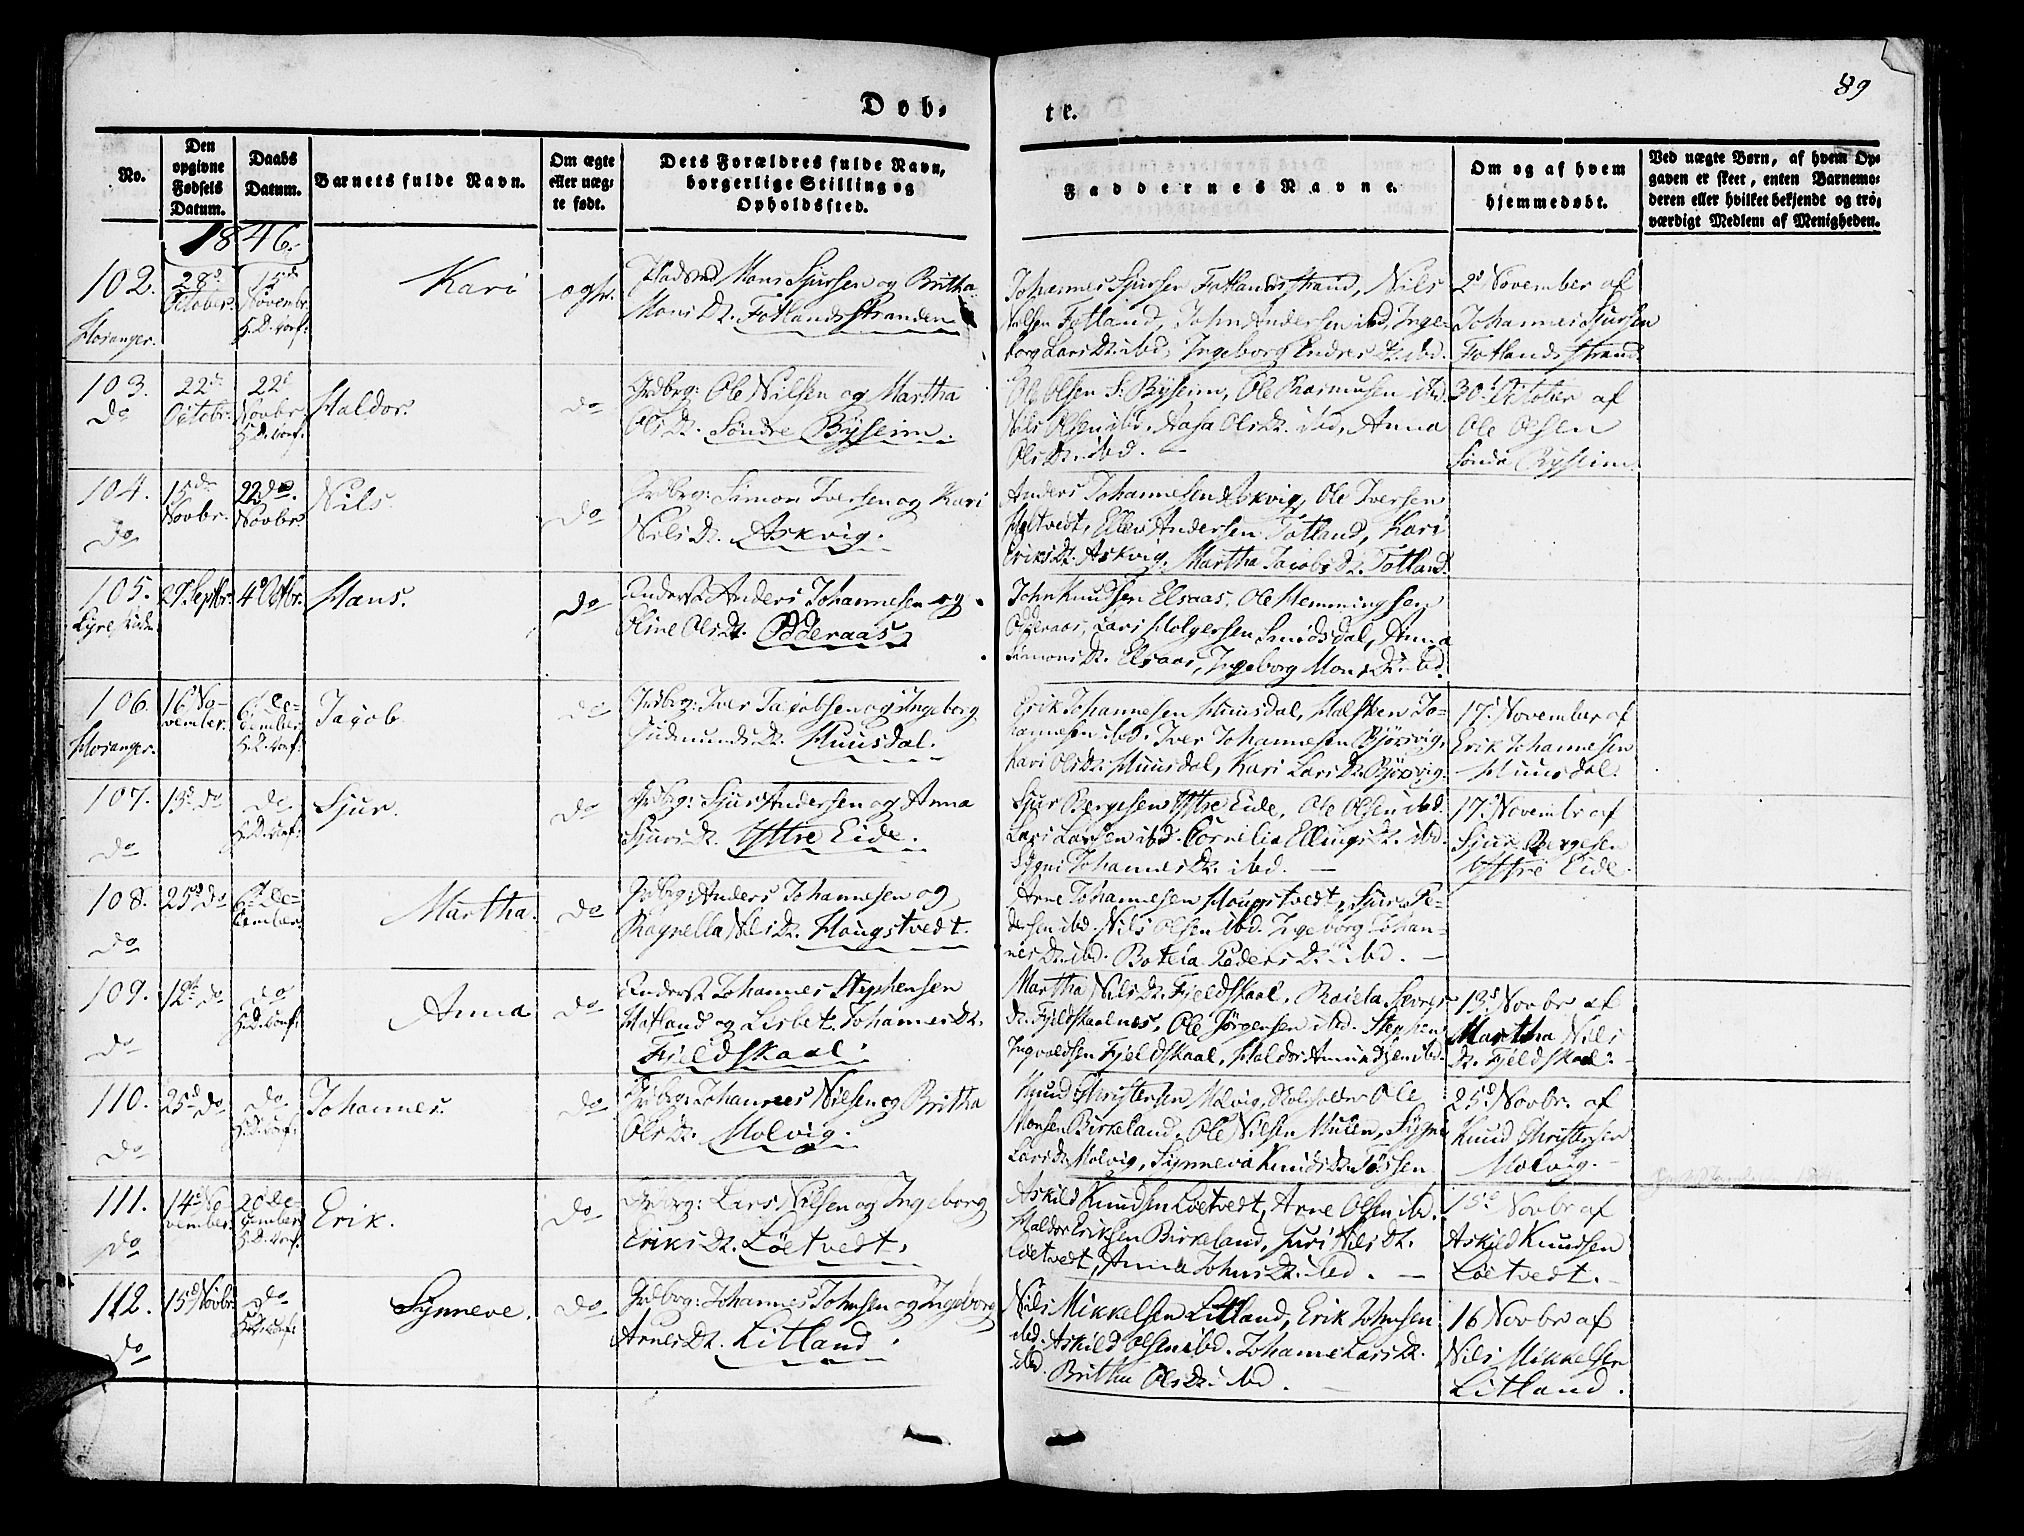 89
Døb-
te.
No.
Den opgivne Fødsels Datum.
Daabs Datum.
Barnets fulde Navn.
Om ægte eller uægte født.
Dets Forældres fulde Navn, borgerlige Stilling og Opholdssted.
Faddernes Navne.
Om og af hvem hjemmedøbt.
Ved uægte Børn, af hvem Opgaven er skeet, enten Barnemoderen eller hvilket bekjendt og troværdigt Medlem af Menigheden.
1846.
102.
Hosanger.
28d
October.
15de
Novembr.
H.D. Conf:
Kari
ægt.
Pladsmd Mons Sjursen og Britha
Mons Dt. Fotlandsstranden
Johannes Sjursen Fotlandsstrand, Nils
Nilsen Fotland, John Andersen ibd, Inge-
borg Lars Dt. ibd, Ingeborg Endres Dt. ibd.
2d November af
Johannes Sjursen
Fotlandsstrand.
103.
Do
22d
Octobr.
22d
Novbr.
H.D. Conf:
Haldor.
do
Grdbrg: Ole Nilsen og Martha
Ols Dt. Søndre Bysheim.
Ole Olsen S. Bysheim, Ole Rasmusen ibd.
Nils Olsen ibd, Aasa Ols Dt. ibd, Anna
Ols Dt. ibd.
30d October af
Ole Olsen
Søndre Bysheim.
104.
Do
15de
Novbr.
22de
Novbr
Nils.
do
Grdbrg: Simon Iversen og Kari
Nils Dt. Askvig.
Anders Johannesen Askvig, Ole Iversen
Holtvedt, Ellev Andersen Totland, Kari
Eriks Dt. Askvig. Martha Jacobs Dt. Totland.
105.
29 Septbr.
4d Octbr.
Hans.
do
Anders Johannesen og
Oline Ols Dt. Odderaas.
John Knudsen Elsaas, Ole Hemmingsen
Odderaas, Lars Holgersen Smidsdal, Anna
Simons Dt. Elsaas, Ingeborg Mons Dt. ibd.
106.
Hosanger.
16 No-
vember.
6 De-
cember
H.D. Conf:
Jacob
do
Grdbrg: Iver Jacobsen og Ingeborg
Gudmunds Dt. Huusdal.
Erik Johannesen Huusdal, Halsten Jo-
hannesen ibd. Iver Johannesen Bjørsvig,
Kari Ols Dt. Huusdal, Kari Lars Dt. Bjørsvig.
17d November af
Erik Johannesen
Huusdal.
107.
Do
13d do
do
H.D. Conf:
Sjur.
do
Grdbrg: Sjur Andersen og Anna
Sjurs Dt. Yttre Eide.
Sjur Bergesen Yttre Eide, Ole Olsen ibd.
Lars Larsen ibd. Cornelia Ellings Dt. ibd.
Sygni Johannes Dt. ibd.
17d Novembr af
Sjur Bergesen
Yttre Eide.
108.
Do
25d do
6 De-
cember.
Martha.
do
Grdbrg: Anders Johannesen og
Ragnella Nils Dt. Hougstvedt.
Arne Johannesen Hougstvedt, Sjur Pe-
dersen ibd. Nils Olsen ibd. Ingeborg Johan-
nes Dt. ibd. Botela Peders Dt. ibd.
109.
Do
12te do
do
H.D. Conf:
Anna
do
Johannes Stephensen
Hatland og Lisbet Johannes Dt.
Fjeldskaal.
Martha Nils Dt. Fjeldskaal,
Dt. Fjeldskaalnes, Ole Jørgensen ibd. Stephen
Ingvaldsen Fjeldskaal, Haldor Amundsen ibd.
13d Novbr af
Martha Nils
Dt. Fjeldskaal.
110.
Do
25d do
do
H.D. Conf:
Johannes.
do
Grdbrg: Johannes Nilsen og Britha
Ols Dt. Molvig.
Knud Christensen Molvig, Ole
Monsen Birkeland, Ole Nilsen Mulen, Sygni
Lars Dt. Molvig, Synneva Knuds Dt. Tøssen.
25d Novbr. af
Knud Christensen
Molvig.
111.
Do
14d No-
vember.
20 De-
cember
H.D. Conf:
Erik.
do
Grdbrg: Lars Nilsen og Ingeborg
Eriks Dt. Løetvedt.
Askild Knudsen Løetvedt, Arne Olsen ibd.
Haldor Eriksen Birkeland, Guri Nils Dt.
Løetvedt, Anna Johns Dt. ibd.
15d Novbr af
Askild Knudsen
Løetvedt.
112.
Do
15d Novbr.
do
H.D. Conf:
Synneve.
do
Grdbrg: Johannes Johnsen og Ingeborg
Arnes Dt. Litland.
Nils Mikkelsen Litland, Erik Johnsen
ibd. Askild Olsen ibd. Johanne Lars Dt.
ibd. Britha Ols Dt. ibd.
16 Novbr af
Nils Mikkelsen
Litland.